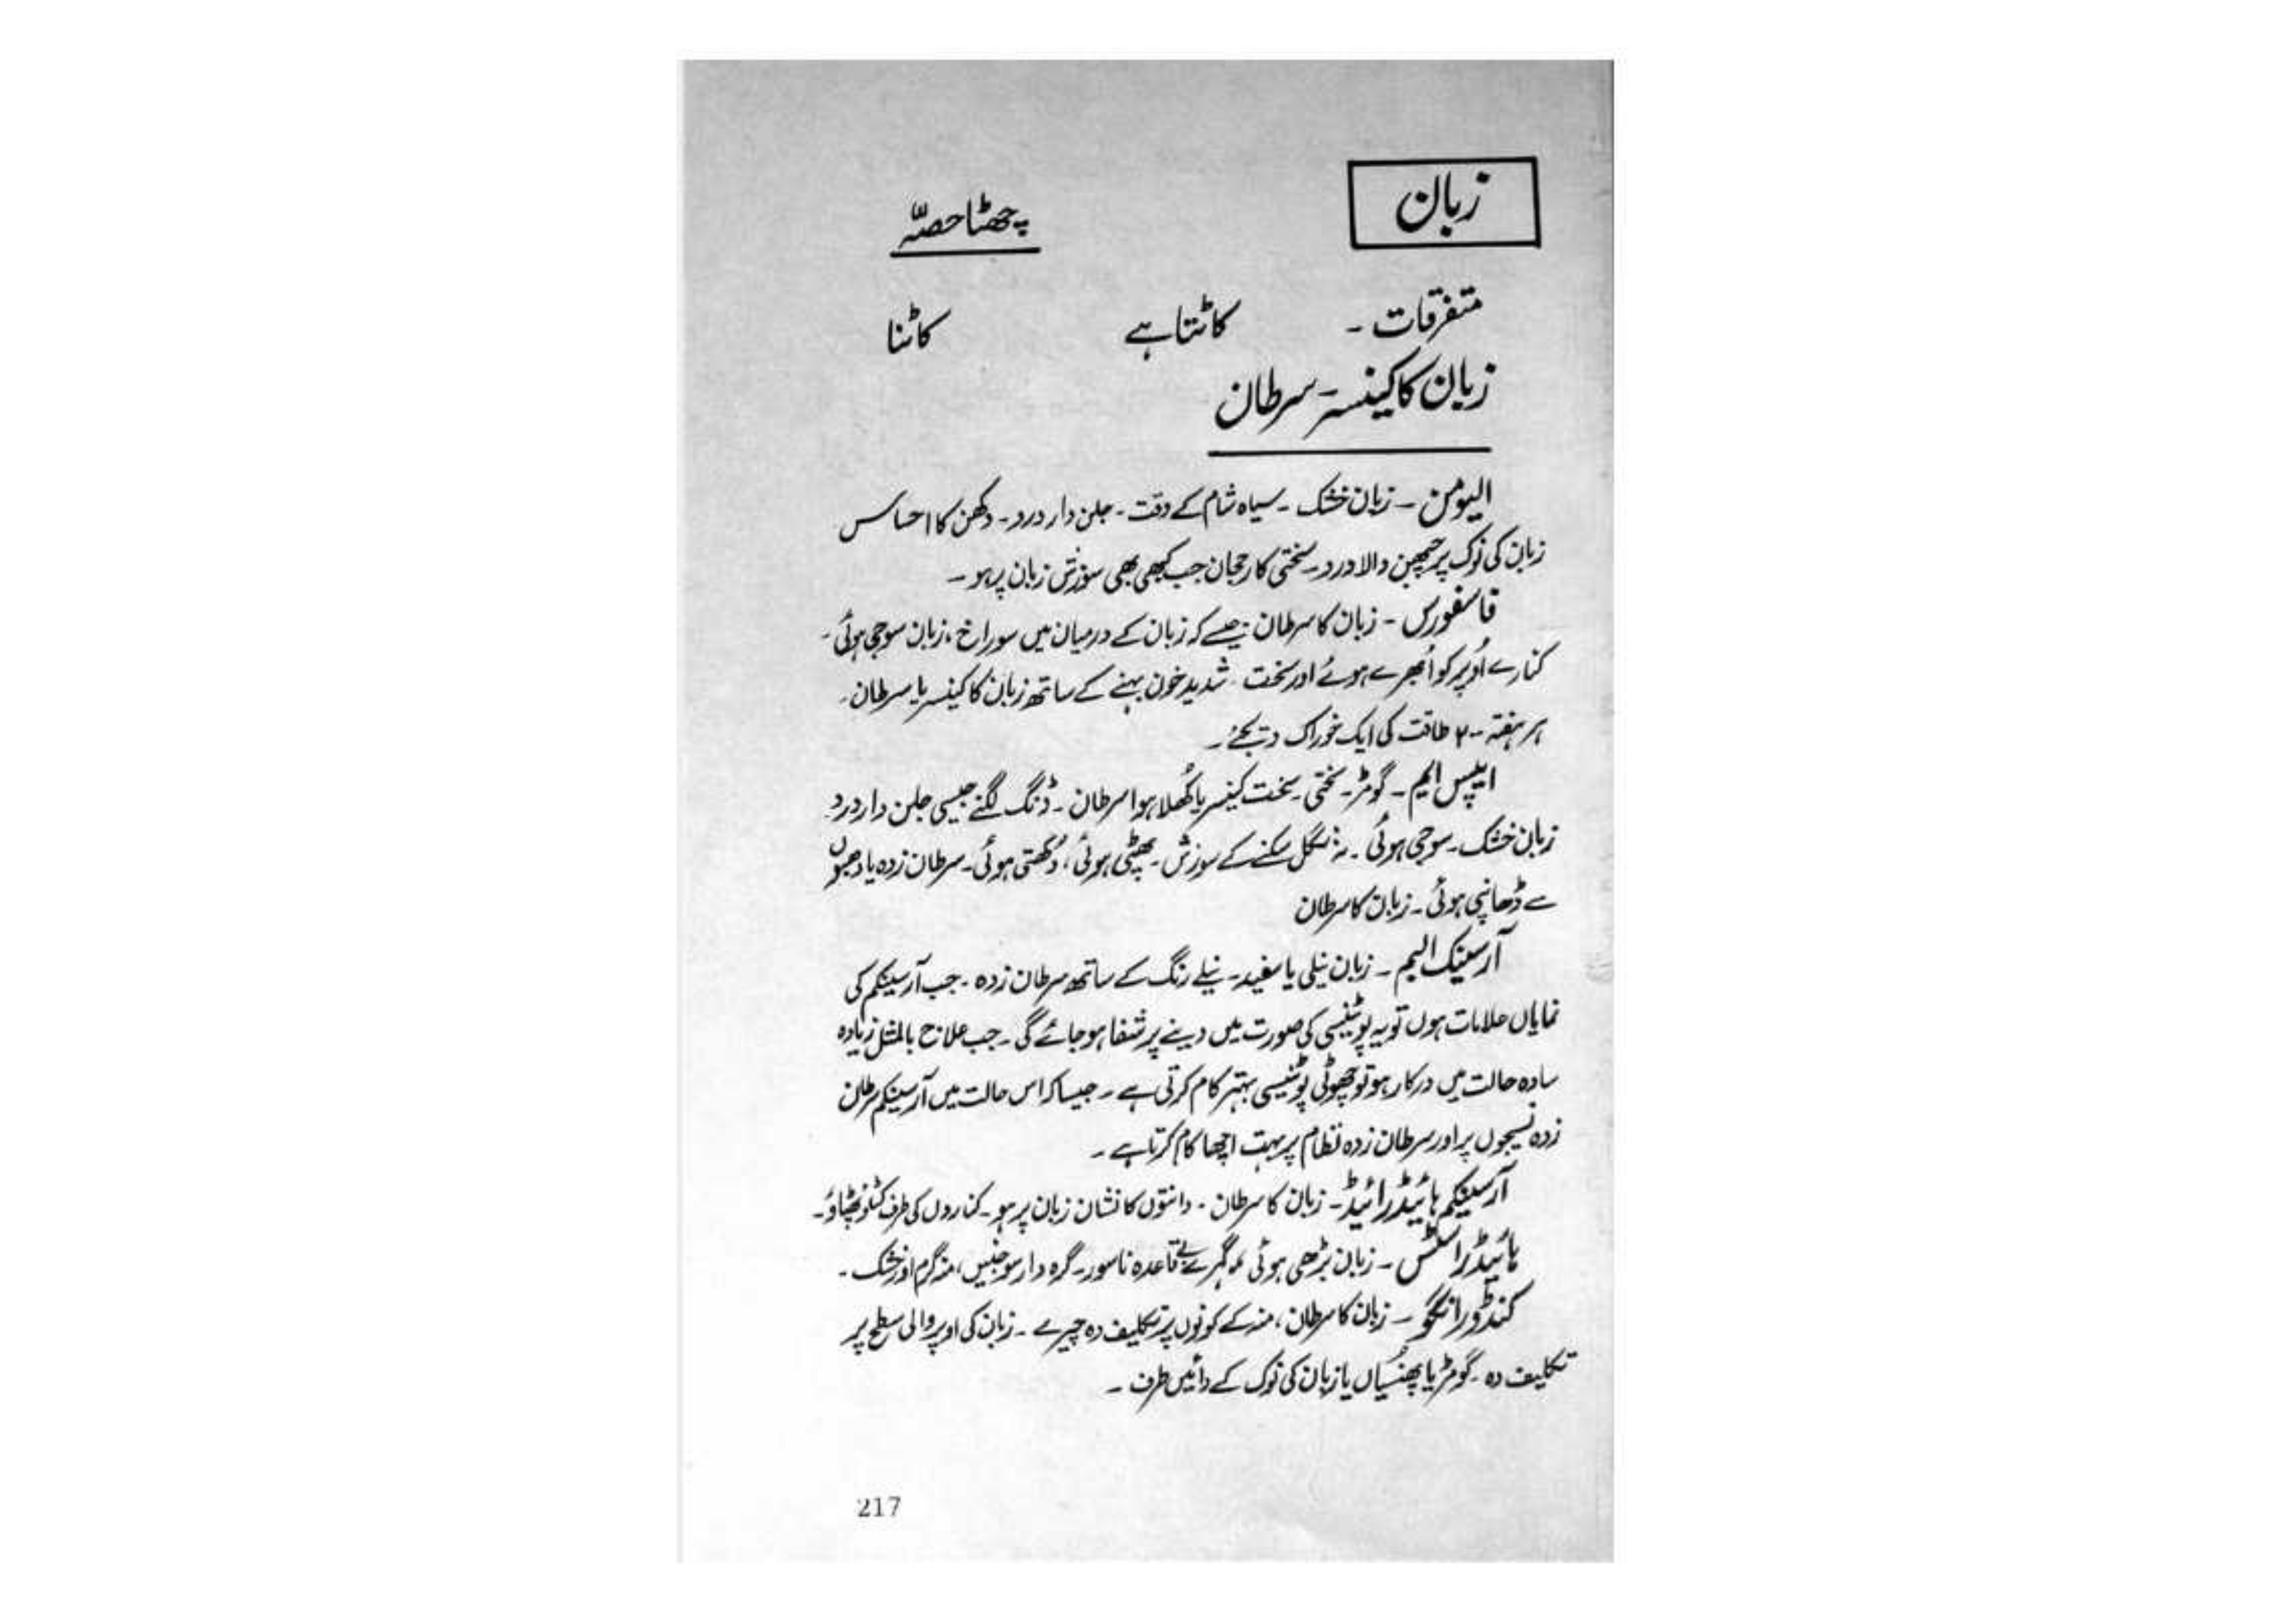 زبان
چھٹا حصّہ
متفرقات - کاٹتا ہے کاٹنا
زبان کا کینسر - سرطان
الیومن - زبان خشک - سیاہ شام کے وقت - جلن دار درد - دکھن کا احساس
زبان کی نوک پر چبھن والا درد - سختی کا رجحان جب کبھی بھی سوزش زبان پر ہو -
فاسفورس - زبان کا سرطان جیسے کہ زبان کے درمیان میں سوراخ ، زبان سوجی ہوئی -
کنارے اُوپر کو اُبھرے ہوئے اور سخت - شدید خون بہنے کے ساتھ زبان کا کینسر یا سرطان -
ہر ہفتہ ۲۰۰ طاقت کی ایک خوراک دیجئے -
ایپس ایم - گومڑ - سختی - سخت کینسر یا کُھلا ہوا سرطان - ڈنگ لگنے جیسی جلن دار درد -
زبان خشک - سوجی ہوئی - نہ نگل سکنے کے سوزش - پھٹی ہوئی ، دُکھتی ہوئی - سرطان زدہ یا دھبوں
سے ڈھانپی ہوئی - زبان کا سرطان
آرسینک البم - زبان نیلی یا سفید - نیلے رنگ کے ساتھ سرطان زدہ - جب آرسینکم کی
نمایاں علامات ہوں تو یہ پوٹینسی کی صورت میں دینے پر شفا ہو جائے گی - جب علاج بالمثل زیادہ
سادہ حالت میں درکار ہو تو چھوٹی پوٹینسی بہتر کام کرتی ہے - جیسا کہ اس حالت میں آرسینکم سرطان
زدہ نسیجوں پر اور سرطان زدہ نظام پر بہت اچھا کام کرتا ہے -
آرسینکم ہائیڈرائیڈ - زبان کا سرطان - دانتوں کا نشان زبان پر ہو - کناروں کی طرف
ہائیڈراسٹس - زبان بڑھی ہوئی گہرے بے قاعدہ ناسور - گرہ دار سوجنیں ، منہ گرم اور خشک -
کنڈورانگو - زبان کا سرطان ، منہ کے کونوں پر تکلیف دہ چیرے - زبان کی اوپر والی سطح پر
تکلیف دہ - گومڑ یا پھنسیاں یا زبان کی نوک کے دائیں طرف -
217